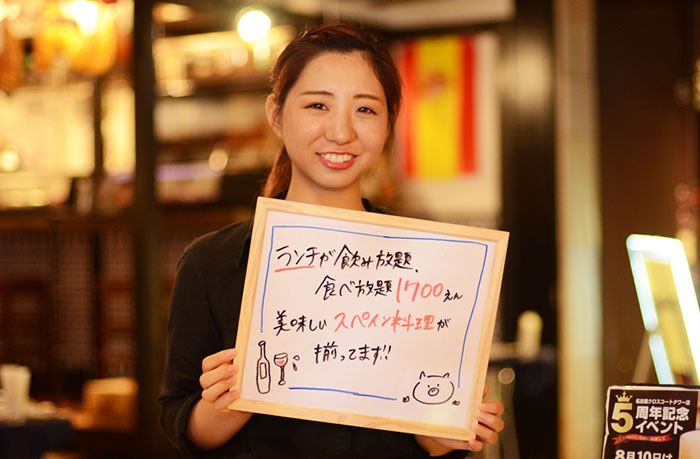 ランチが飲み放題、
食べ放題1700えん
美味しいスペイン料理が
揃ってます!!
名古屋クロスコートタワー店
5周年記念
イベント
8月10日は